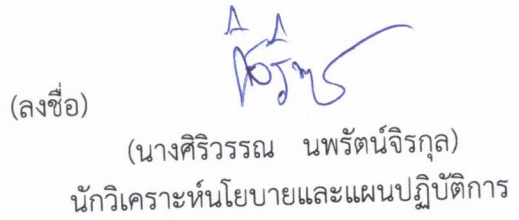 (ลงชื่อ)
(นางศิริวรรณ นพรัตน์จิรกุล)
นักวิเคราะห์นโยบายและแผนปฏิบัติการ